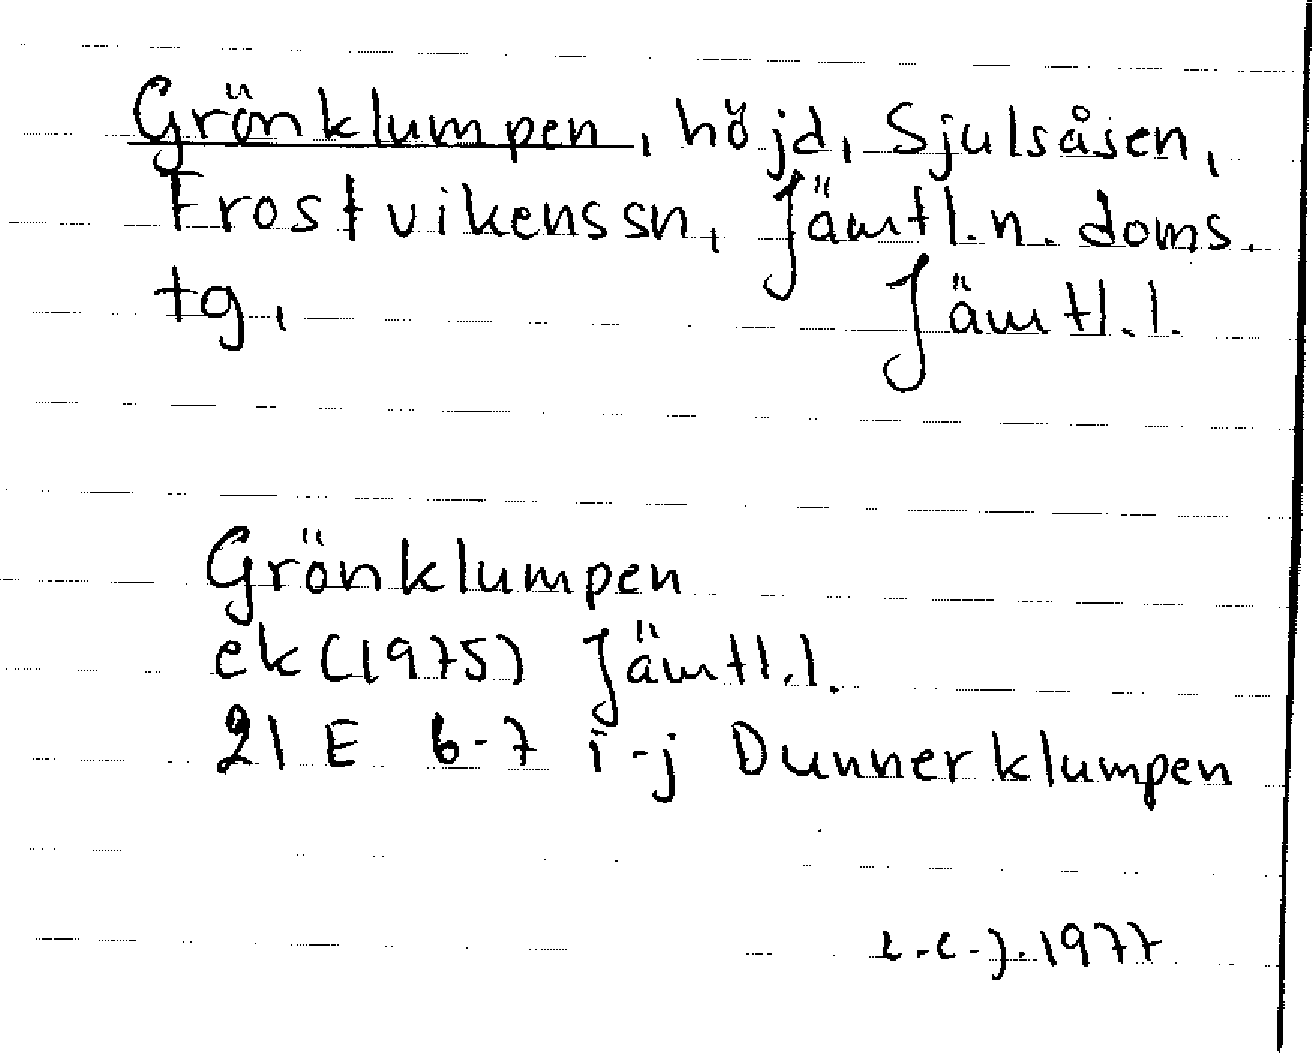 Grönklumpen, höjd, Sjulsåsen,
Frostvikens sn, Jämtl. n. doms.
tg, Jämtl. l.
Grönklumpen
ek (1975) Jämtl. l.
21 E 6-7 i-j Dunnerklumpen
1977